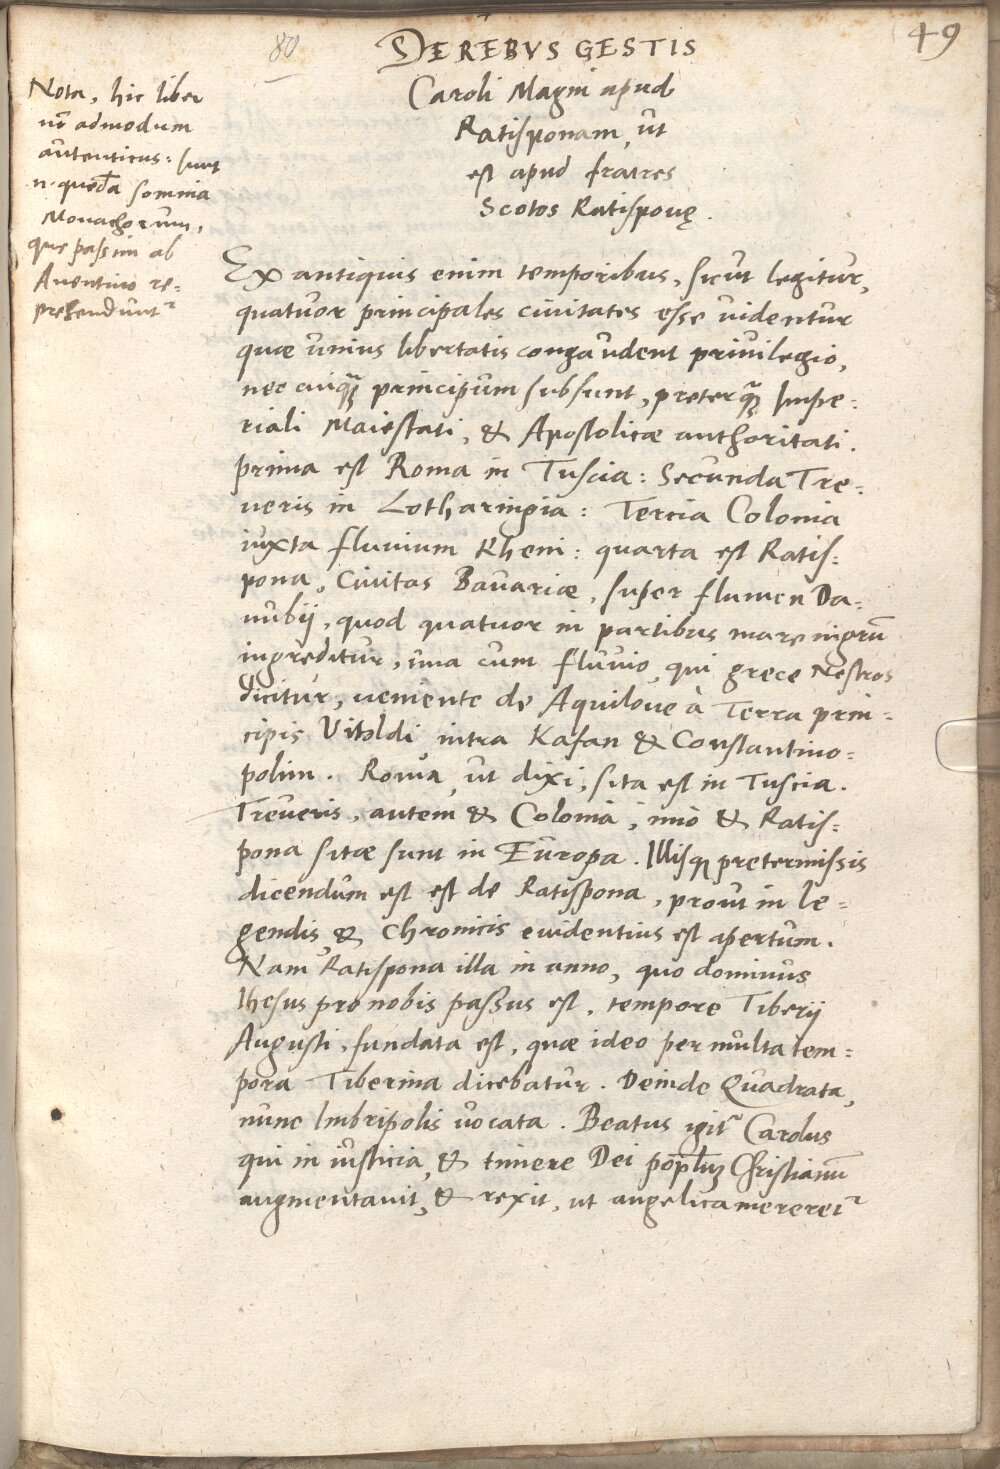 80
49
DE REBVS GESTIS
Caroli Magni apud
Ratisponam, ut
est apud fratres
Scotos Ratisponę.
Nota, hic liber
nō admodum
autenticus: sunt
n. quedā somnia
Monachorum,
que passim ab
Auentino re=
prehendunt᷑
Ex antiquis enim temporibus, sicut legitur,
quatuor principales ciuitates esse uidentur
quæ unius libertatis congaudent priuilegio,
nec cuiqꝫ̃ principum subsunt, preterqꝫ̃ Impe=
riali Maiestati, & Apostolicæ authoritati.
prima est Roma in Tuscia: Secunda Tre=
ueris in Lotharingia: Tercia Colonia
iuxta fluuium Rheni: quarta est Ratis=
pona, Ciuitas Bauariæ, super flumen Da=
nubij, quod quatuor in partibus mare nigrū
ingreditur, una cum fluuio, qui grece Nestros
dicitur, ueniente de Aquilone à Terra prin=
cipis Vitoldi intra Kafan & Constantino=
polim. Roma, ut dixi, sita est in Tuscia.
Treueris, autem & Colonia, imò & Ratis=
pona sitæ sunt in Europa. Illisqꝫ pretermissis
dicendum est est de Ratispona, prout in le=
gendis & Chronicis euidentius est apertum.
Nam Ratispona illa in anno, quo dominus
Ihesus pro nobis passus est, tempore Tiberij
Augusti, fundata est, quæ ideo per multa tem=
pora Tiberina dicebatur. Deinde Quadrata,
nunc Imbripolis uocata. Beatus igit᷑ Carolus
qui in iusticia & timere Dei pōplꝫ Christianū
augmentauit, & rexit, ut angelica mereret᷑